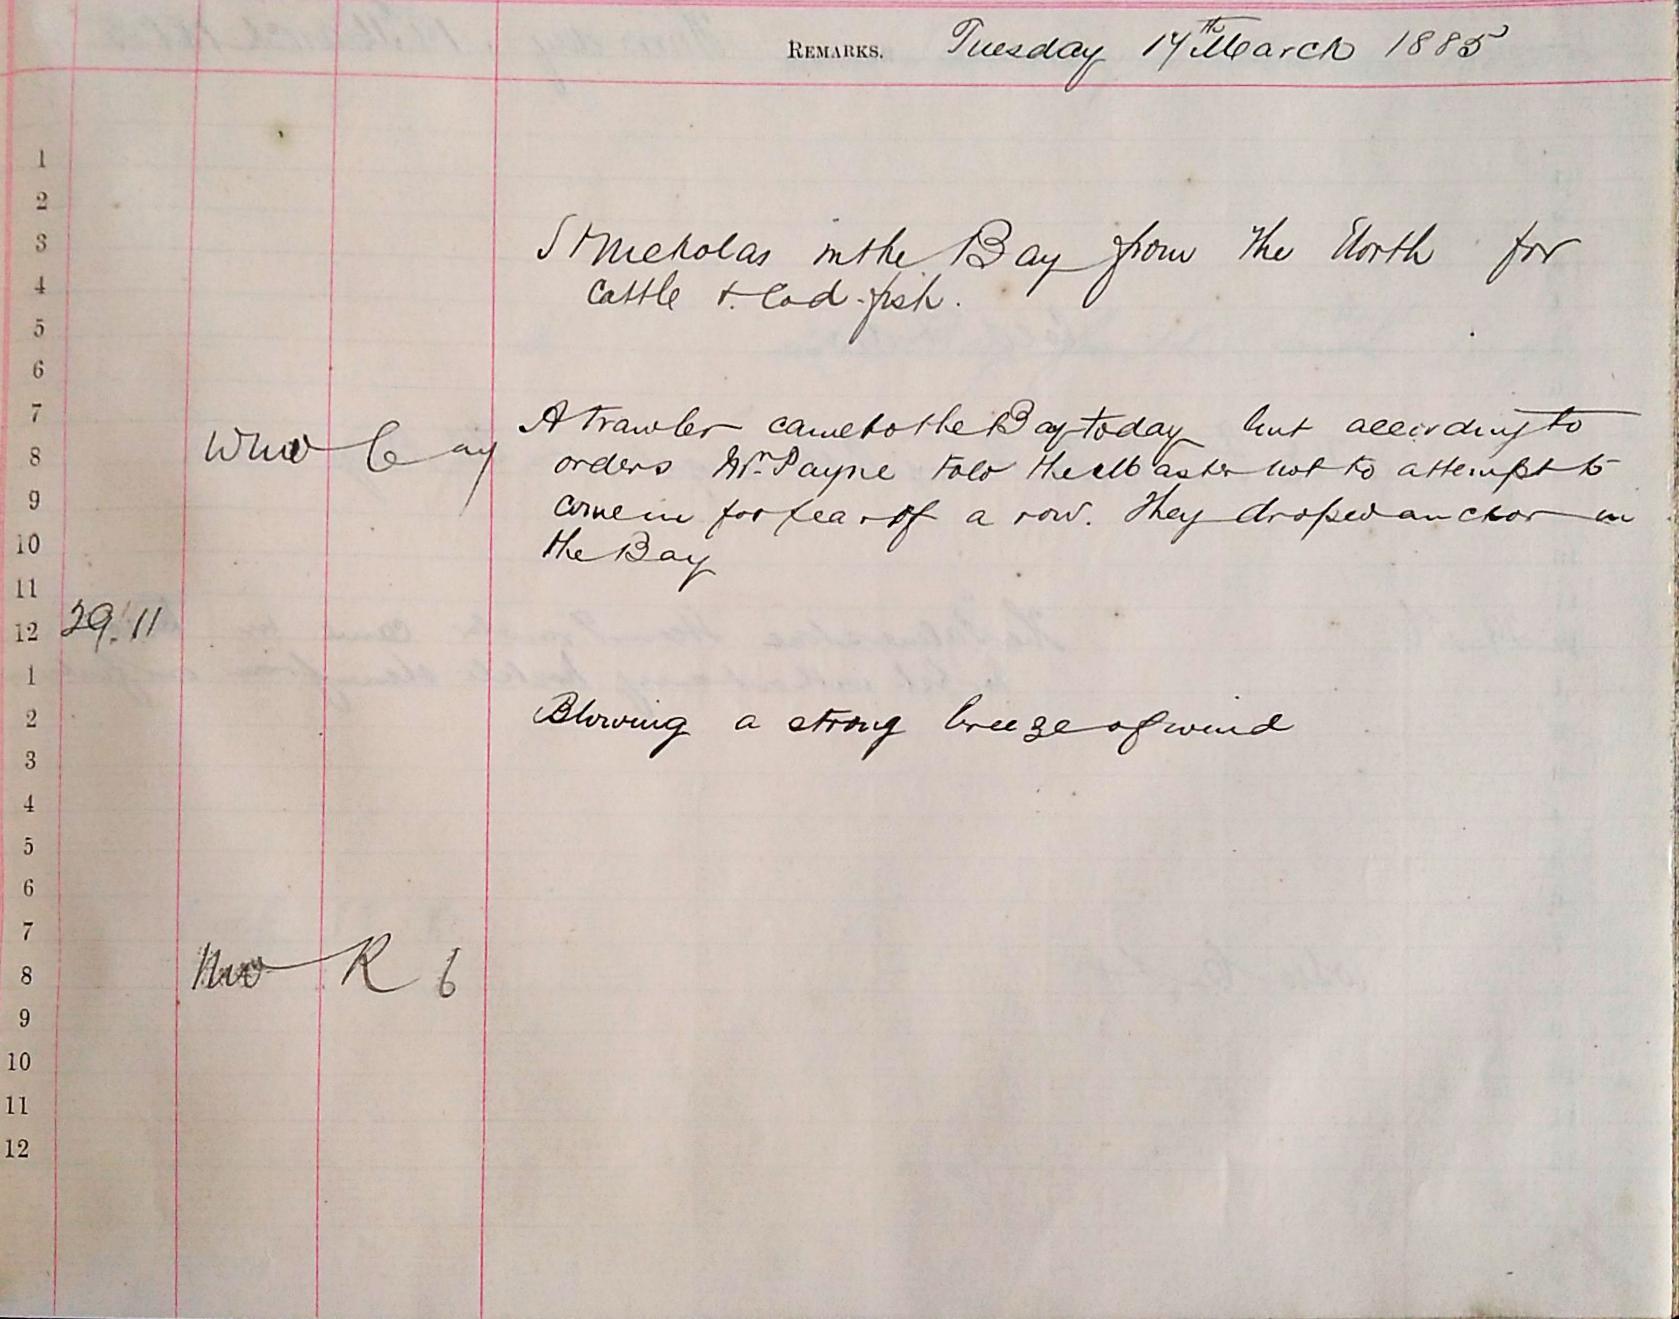 REMARKS. Tuesday 17th March 1885
1
2
3 St Nicholas in the Bay from the North for
4 cattle & Cod-fish.
5
6
7 A trawler came to the Bay today but according to
8 WNW C orders Mr. Payne told the Master not to attempt to
9 come in for fear of a row. They droped anchor in
10 the Bay
11
12 29.11
1
2 Blowing a strong breeze of wind
3
4
5
6
7
8 NW R 6
9
10
11
12